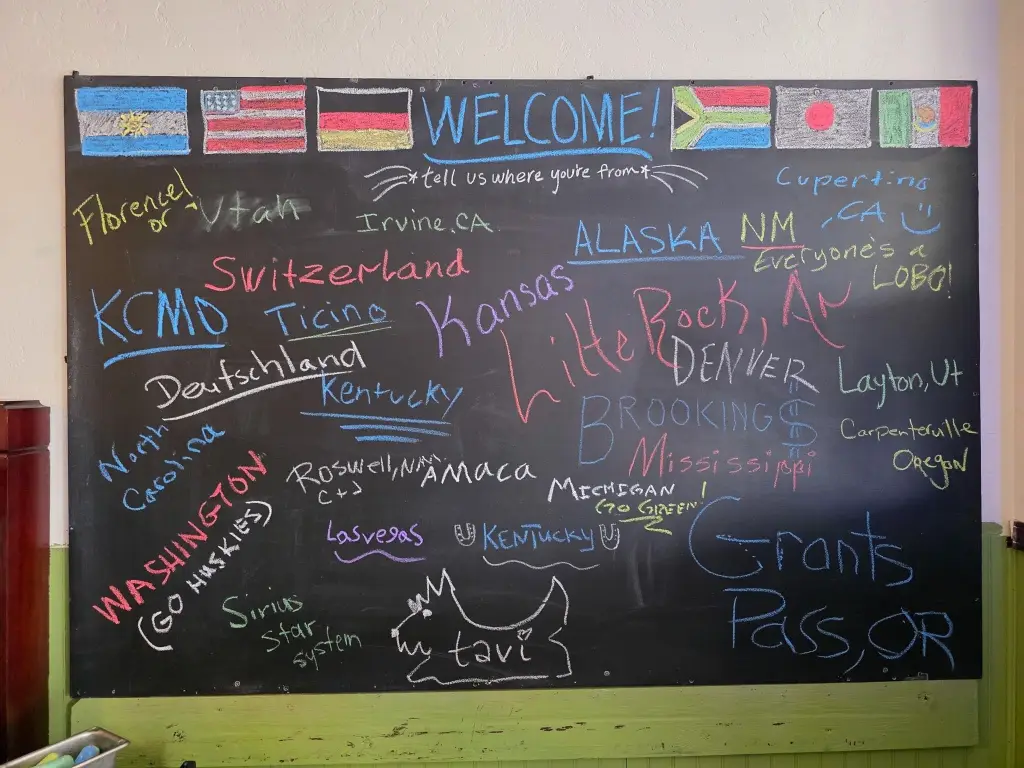 WELCOME!
*tell us where you're from*
Florence!
or
Utah
Irvine, CA
Cupertino
, CA
ALASKA
NM
Everyone's a
LOBO!
Switzerland
KCMO
Ticino
Kansas
Little Rock, Ar
Deutschland
Kentucky
DENVER
Layton, Ut
BROOKING$
Carpenterville
Oregon
North
Carolina
Mississippi
Roswell, NM
C+J
AMACA
MICHIGAN
GO GREEN!
WASHINGTON
(GO HUSKIES)
Las vegas
KENTUCKY
Grants
Pass, OR
Sirius
star
system
tavi